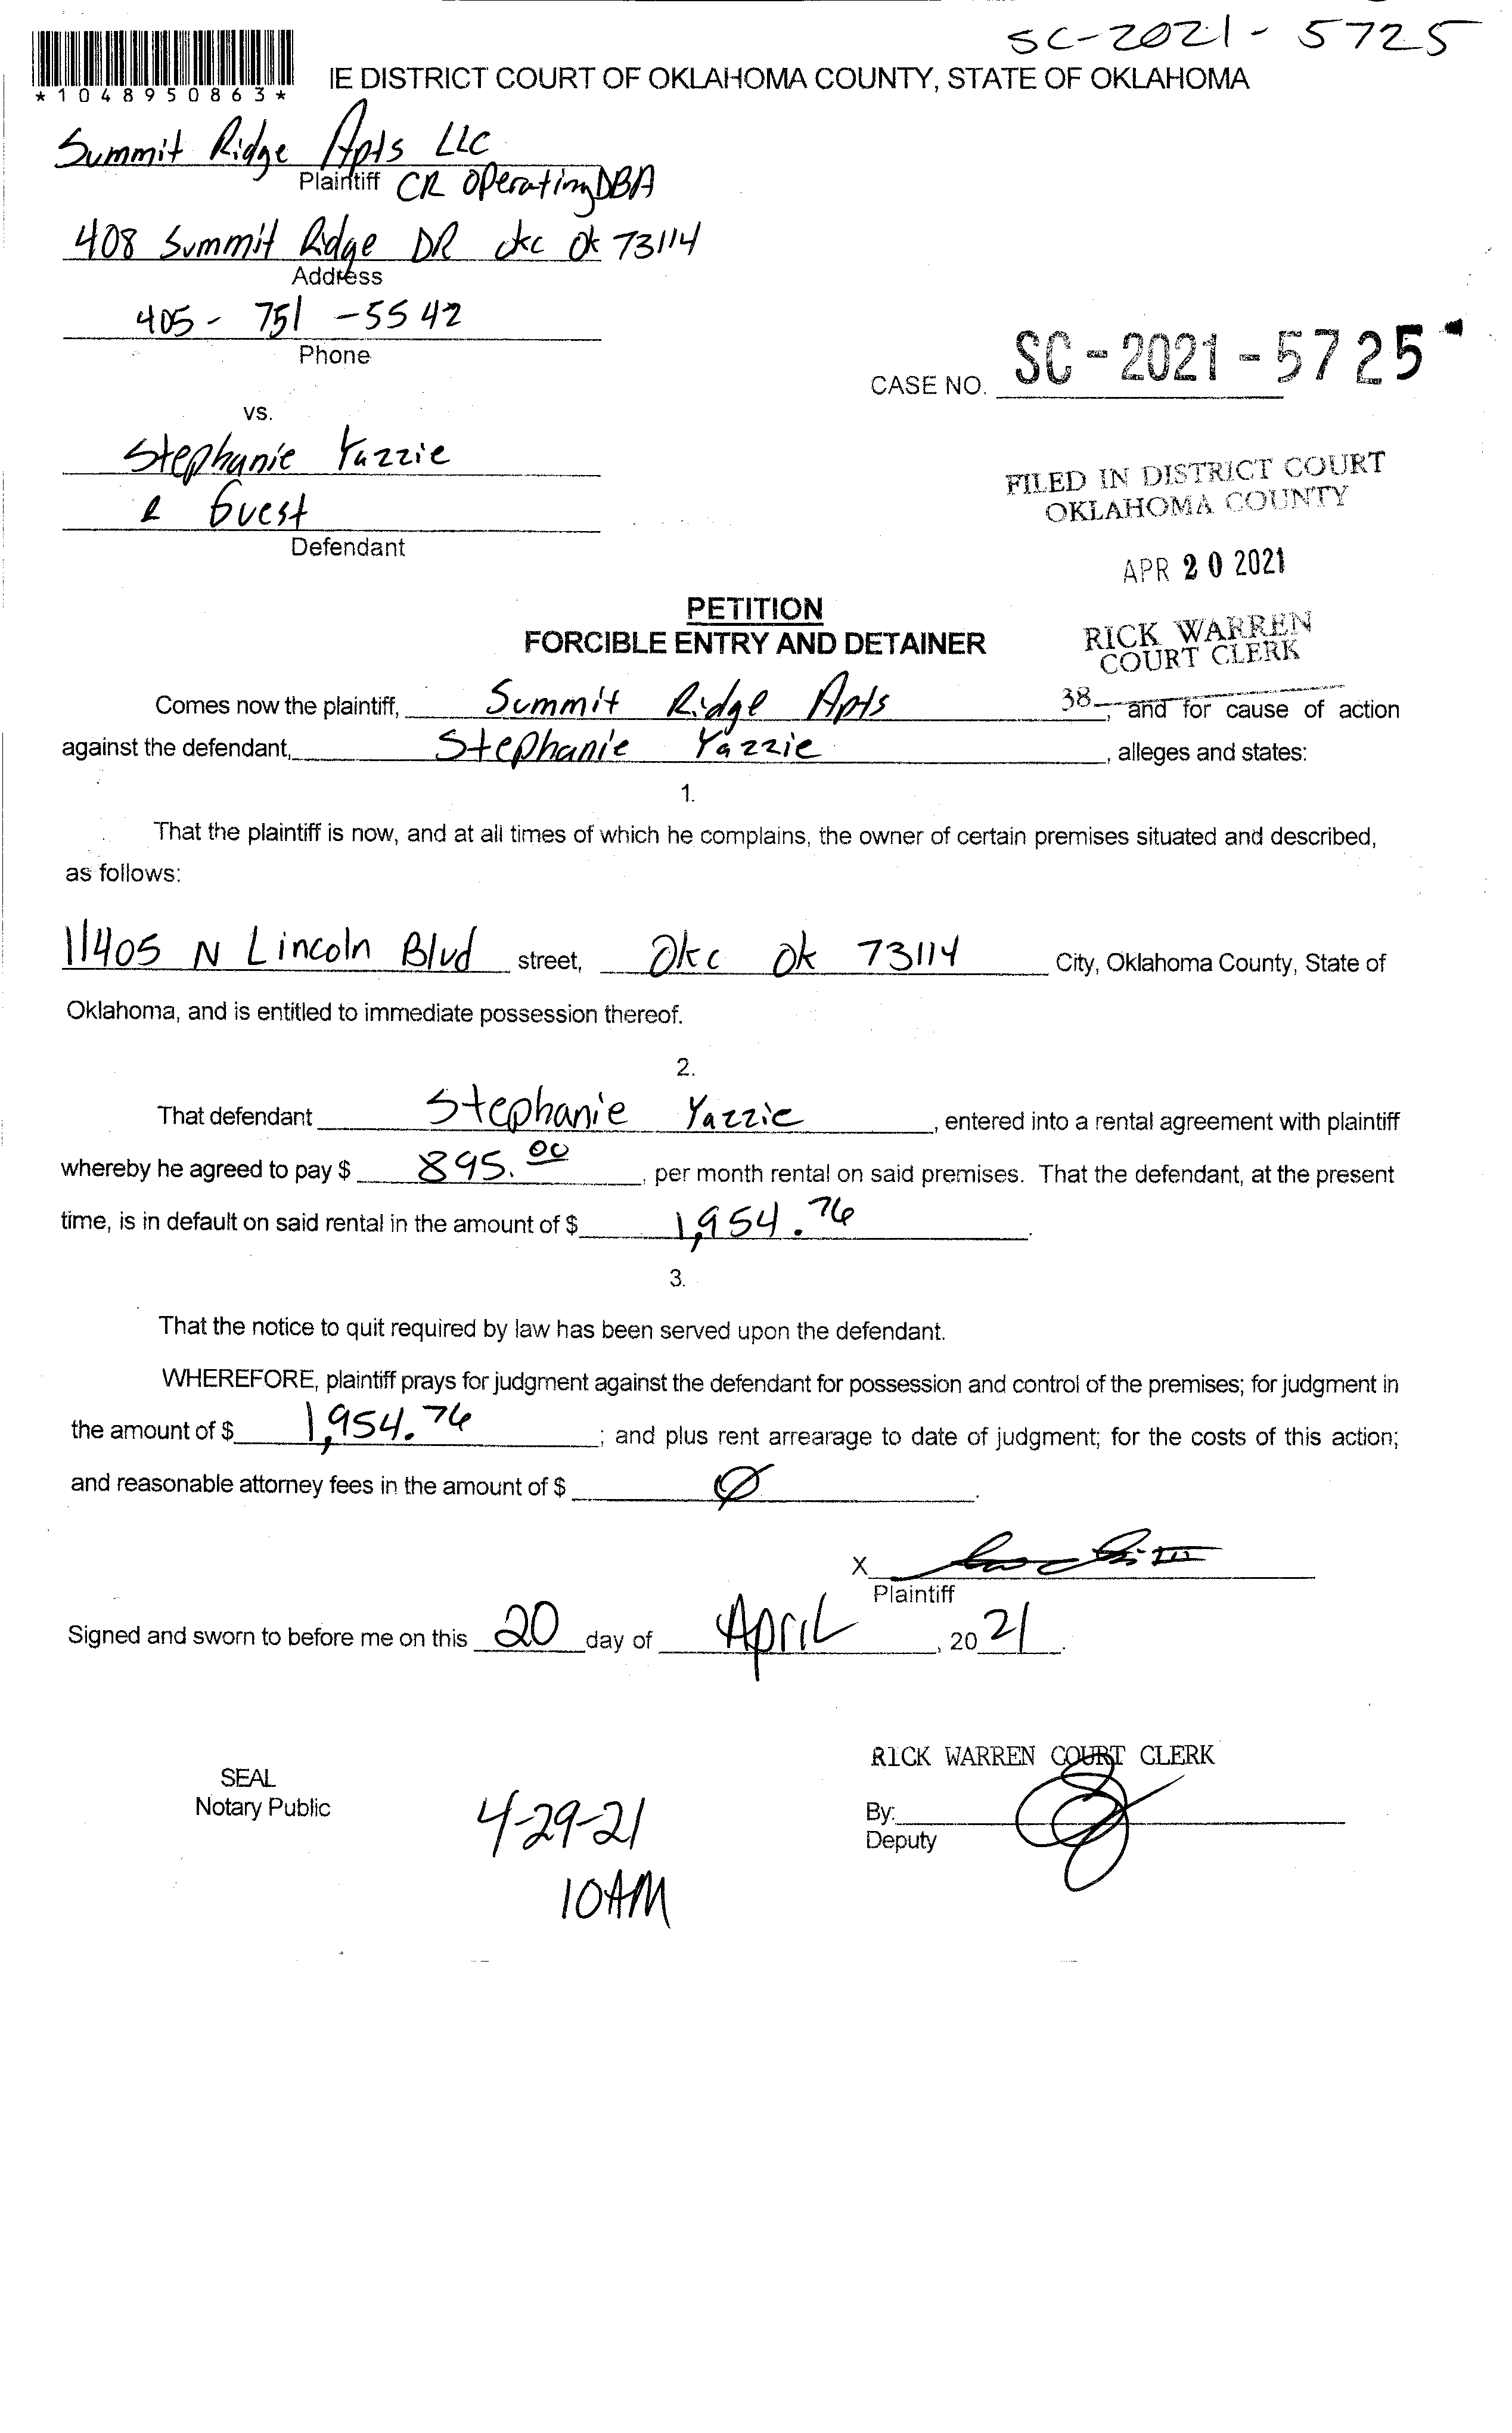 SC-2021-5725
*1048950863*
IE DISTRICT COURT OF OKLAHOMA COUNTY, STATE OF OKLAHOMA
Summit Ridge Apts LLC
Plaintiff CR Operating DBA
408 Summit Ridge DR okc ok 73114
Address
405-751-5542
Phone
CASE NO. SC-2021-5725
vs.
Stephanie Yazzie
& Guest
Defendant
FILED IN DISTRICT COURT
OKLAHOMA COUNTY
APR 20 2021
RICK WARREN
COURT CLERK
38
PETITION
FORCIBLE ENTRY AND DETAINER
Comes now the plaintiff, Summit Ridge Apts, and for cause of action
against the defendant, Stephanie Yazzie, alleges and states:
1.
That the plaintiff is now, and at all times of which he complains, the owner of certain premises situated and described,
as follows:
11405 N Lincoln Blvd street, Okc Ok 73114 City, Oklahoma County, State of
Oklahoma, and is entitled to immediate possession thereof.
2.
That defendant Stephanie Yazzie, entered into a rental agreement with plaintiff
whereby he agreed to pay $ 895.00, per month rental on said premises. That the defendant, at the present
time, is in default on said rental in the amount of $ 1,954.76.
3.
That the notice to quit required by law has been served upon the defendant.
WHEREFORE, plaintiff prays for judgment against the defendant for possession and control of the premises; for judgment in
the amount of $ 1,954.76; and plus rent arrearage to date of judgment; for the costs of this action;
and reasonable attorney fees in the amount of $ Ø.
X
Plaintiff
Signed and sworn to before me on this 20 day of April, 2021.
RICK WARREN COURT CLERK
SEAL
Notary Public
4-29-21
10AM
By:
Deputy